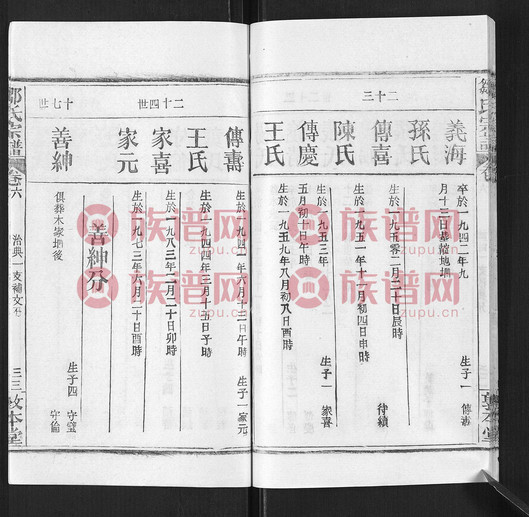 二十三
義海 卒於一九四二年九
月十三日葬龍塊塭 生子一 傳壽
孫氏
傳喜 生於一九五零二月二十日辰時 待續
陳氏 生於一九五一年十一月初四日申時
傳慶 生於一九五三年 生子一 家喜
五月初十日午時
王氏 生於一九五九年八月初八日酉時
二十四世
傳壽 生於一九四一年 月二十三日午時 生子一家元
王氏 生於一九四四年三月十五日子時
家喜 生於一九八三年二月二十日卯時
家元 生於一九七三年六月二十日酉時
善紳分
十七世
善紳 俱葬木家塭後 生子四 守璧
守倫
鄒氏宗譜 卷六 治典一支補文 三三 敦本堂
族谱网
zupu.cn
族谱网
zupu.cn
族谱网
zupu.cn
族谱网
zupu.cn